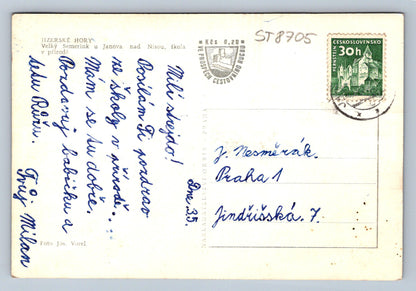 JIZERSKÉ HORY
Velký Semerink u Janova nad Nisou, škola
v přírodě
Kčs 0,20
VE PROSPĚCH CESTOVNÍHO RUCHU
ST8705
ČESKOSLOVENSKO
30h
PERNŠTEJN
Milý strejdo!
Posílám Ti pozdrav
ze školy v přírodě.
Mám se tu dobře.
Pozdravuj babičku a
tetu Růžu.
Tvůj Milan
Dne 3.5.
J. Nesměrák.
Praha 1
Jindřišská. 7.
Foto Jos. Vorel